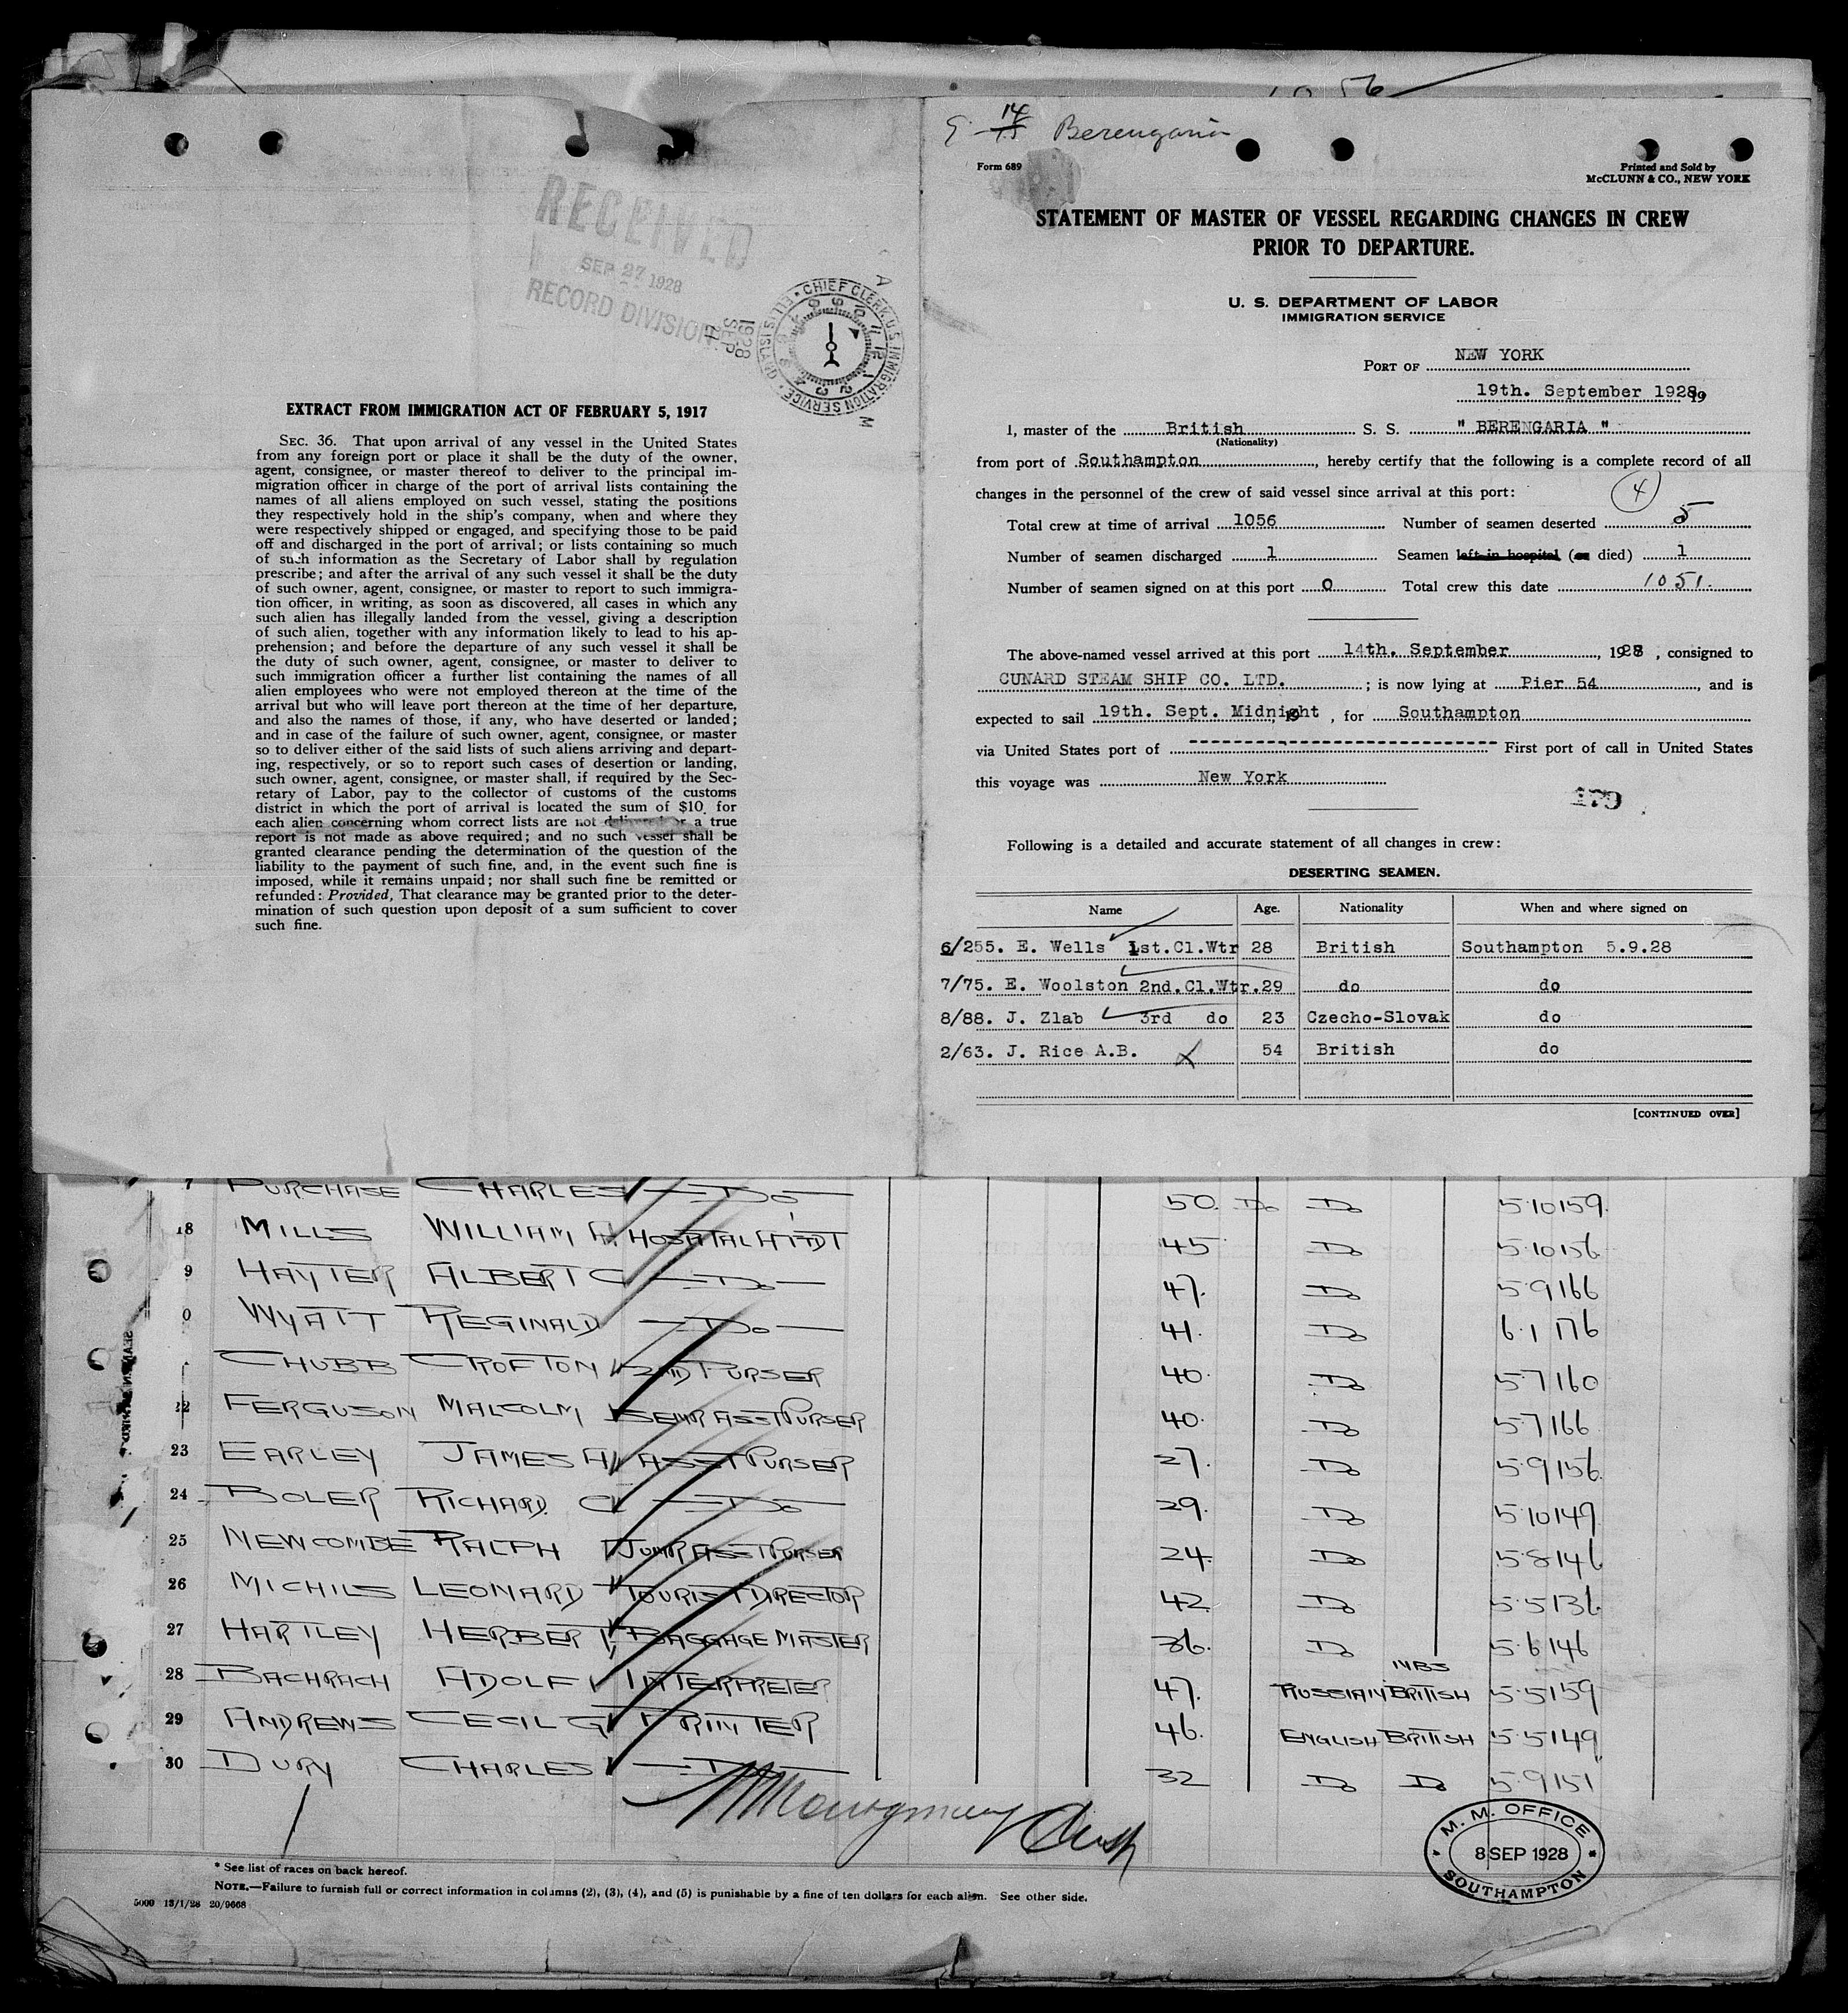 1056
9 14 Berengaria
Form 689
Printed and Sold by
McCLUNN & CO., NEW YORK
STATEMENT OF MASTER OF VESSEL REGARDING CHANGES IN CREW
PRIOR TO DEPARTURE.
U. S. DEPARTMENT OF LABOR
IMMIGRATION SERVICE
PORT OF NEW YORK
19th. September 1928, 19
I, master of the British S. S. " BERENGARIA "
(Nationality)
from port of Southampton, hereby certify that the following is a complete record of all
changes in the personnel of the crew of said vessel since arrival at this port:
(4)
Total crew at time of arrival 1056 Number of seamen deserted 5
Number of seamen discharged 1 Seamen left in hospital (or died) 1
Number of seamen signed on at this port 0 Total crew this date 1051.
The above-named vessel arrived at this port 14th. September, 1928, consigned to
CUNARD STEAM SHIP CO. LTD.; is now lying at Pier 54, and is
expected to sail 19th. Sept. Midnight 19, for Southampton
via United States port of ---------------- First port of call in United States
this voyage was New York
Following is a detailed and accurate statement of all changes in crew:
DESERTING SEAMEN.
Name Age. Nationality When and where signed on
6/255. E. Wells 1st.Cl.Wtr 28 British Southampton 5.9.28
7/75. E. Woolston 2nd.Cl.Wtr. 29 do do
8/88. J. Zlab 3rd do 23 Czecho-Slovak do
2/63. J. Rice A.B. X 54 British do
[CONTINUED OVER]
RECEIVED
SEP 27 1928
RECORD DIVISION
1928
SEP
CHIEF CLERK, U.S. IMMIGRATION SERVICE • ELLIS ISLAND
A
M
EXTRACT FROM IMMIGRATION ACT OF FEBRUARY 5, 1917
SEC. 36. That upon arrival of any vessel in the United States
from any foreign port or place it shall be the duty of the owner,
agent, consignee, or master thereof to deliver to the principal im-
migration officer in charge of the port of arrival lists containing the
names of all aliens employed on such vessel, stating the positions
they respectively hold in the ship's company, when and where they
were respectively shipped or engaged, and specifying those to be paid
off and discharged in the port of arrival; or lists containing so much
of such information as the Secretary of Labor shall by regulation
prescribe; and after the arrival of any such vessel it shall be the duty
of such owner, agent, consignee, or master to report to such immigra-
tion officer, in writing, as soon as discovered, all cases in which any
such alien has illegally landed from the vessel, giving a description
of such alien, together with any information likely to lead to his ap-
prehension; and before the departure of any such vessel it shall be
the duty of such owner, agent, consignee, or master to deliver to
such immigration officer a further list containing the names of all
alien employees who were not employed thereon at the time of the
arrival but who will leave port thereon at the time of her departure,
and also the names of those, if any, who have deserted or landed;
and in case of the failure of such owner, agent, consignee, or master
so to deliver either of the said lists of such aliens arriving and depart-
ing, respectively, or so to report such cases of desertion or landing,
such owner, agent, consignee, or master shall, if required by the Sec-
retary of Labor, pay to the collector of customs of the customs
district in which the port of arrival is located the sum of $10 for
each alien concerning whom correct lists are not delivered or a true
report is not made as above required; and no such vessel shall be
granted clearance pending the determination of the question of the
liability to the payment of such fine, and, in the event such fine is
imposed, while it remains unpaid; nor shall such fine be remitted or
refunded: Provided, That clearance may be granted prior to the deter-
mination of such question upon deposit of a sum sufficient to cover
such fine.
7 PURCHASE CHARLES Do 50. Do Do 5.10 159.
18 MILLS WILLIAM A. HOSPITAL ATTDT 45 Do 5.10 156
9 HAYTER ALBERT C Do 47. Do 5.9 166
0 WYATT REGINALD Do 41. Do 6.1 176
CHUBB CROFTON 2ND PURSER 40. Do 5.7 160
22 FERGUSON MALCOLM SENR ASST PURSER 40. Do 5.7 166
23 EARLEY JAMES A ASST PURSER 27. Do 5.9 156
24 BOLER RICHARD. C Do 29. Do 5.10 149
25 NEWCOMBE RALPH JUNR ASST PURSER 24. Do 5.8 146
26 MICHILS LEONARD TOURIST DIRECTOR 42 Do 5.5 136
27 HARTLEY HERBERT BAGGAGE MASTER 36. Do 5.6 146
28 BACHRACH ADOLF INTERPRETER 47. RUSSIAN BRITISH 5.5 159
29 ANDREWS CECIL G PRINTER 46. ENGLISH BRITISH 5.5 149
30 DURY CHARLES Do 32 Do Do 5.9 151
M. M. OFFICE
8 SEP 1928
SOUTHAMPTON
* See list of races on back hereof.
NOTE.—Failure to furnish full or correct information in columns (2), (3), (4), and (5) is punishable by a fine of ten dollars for each alien. See other side.
5000 13/1/28 20/9668